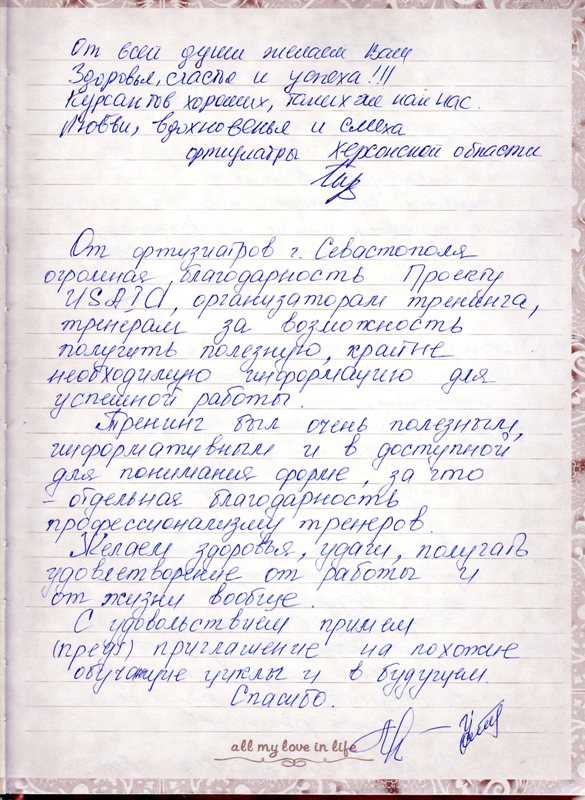 От всей души желаем Вам
Здоровья, счастья и успеха!!!
Курсантов хороших, таких же как нас.
Любви, вдохновенья и смеха
фтизиатры Херсонской области
От фтизиатров г. Севастополя
огромная благодарность Проекту
USAID, организаторам тренинга,
тренерам за возможность
получить полезную, крайне
необходимую информацию для
успешной работы.
Тренинг был очень полезным,
информативным и в доступной
для понимания форме, за что
- отдельная благодарность
профессионализму тренеров.
Желаем здоровья, удачи, получать
удовлетворение от работы и
от жизни вообще.
С удовольствием примем
приглашение на похожие
обучающие циклы и в будущем.
Спасибо.
all my love in life